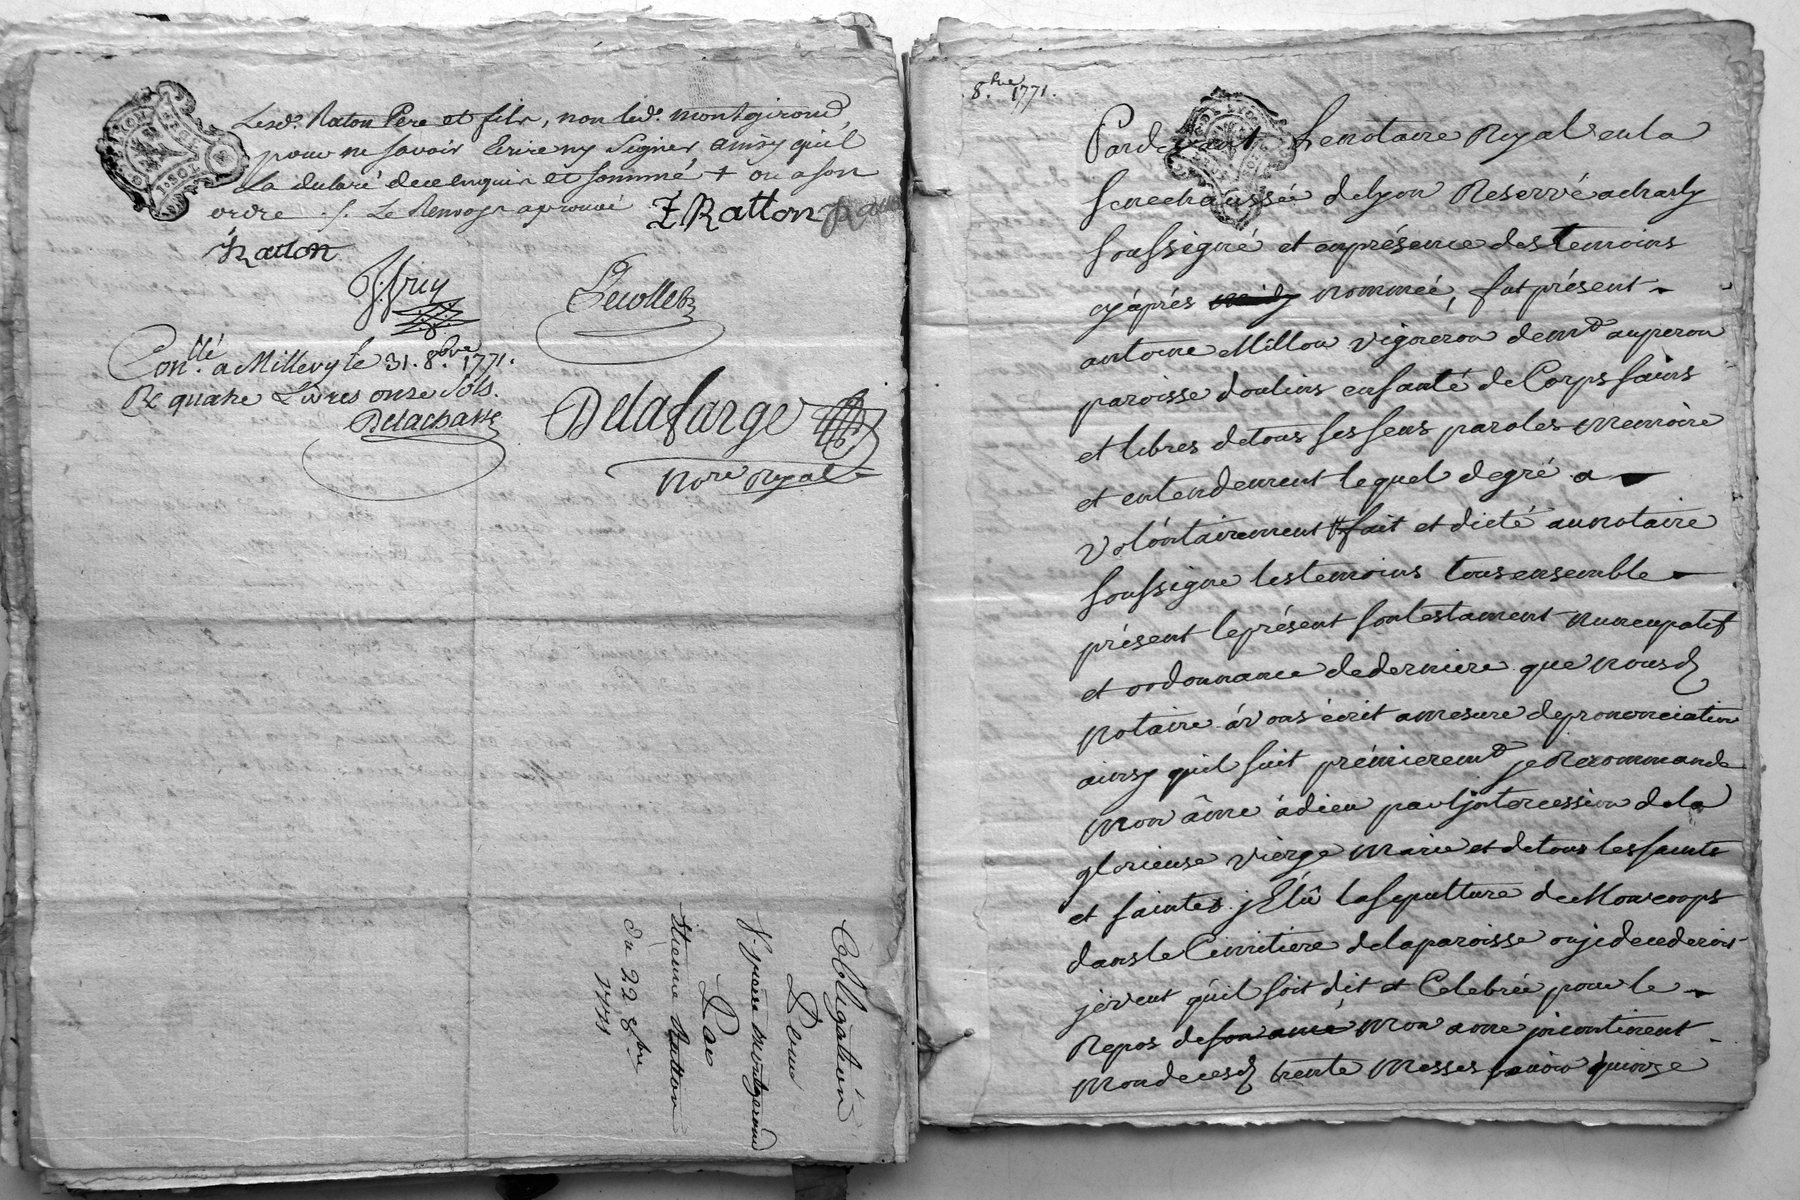 Lesd. Raton Pere et fils, non led. montgirond,
pour ne savoir Ecrire ny Signer ainsy qu'il
la declaré de ce enquis et sommé + ou a son
ordre ./. Le Renvoye aprouvé E Ratton
Ratton
Decollet
Con.llé a Millery le 31. 8.bre 1771.
Re quatre Livres onze Sols.
Delachasse
Delafarge
No.re Royal
Obligation
De
Pierre Montgirond
Par
Etienne Ratton
Du 22 8.bre
1771
8.bre 1771.
Pardevant Le notaire Royal en la
senechaussée de lyon Reservé a charly
soussigné et en présence des temoins
cy aprés nommée, fut présent
antoine Millon vigneron de m.d auperon
paroisse doulins enfanté de Corps sains
et libres de tous ses sens paroles Memoire
et entendement lequel de gré a
volontairement fait et dicté au notaire
soussigne les temoins tous ensemble
présent le présent son testament nuncupatif
et ordonnance de derniere que nousd
notaire avons écrit a mesure de prononciation
ainsy quil suit prémierem.t je Recommande
mon âme à dieu par l'intercession de la
glorieuse vierge Marie et de tous les saints
et saintes. j Elû la sepulture de Mon corps
dans le Cimitiere de la paroisse ou je decederois
je veut qu'il soit dit et Celebrée pour le
Repos de son ame, Mon ame incontinent
Mon decesd trente Messes savoir quinze